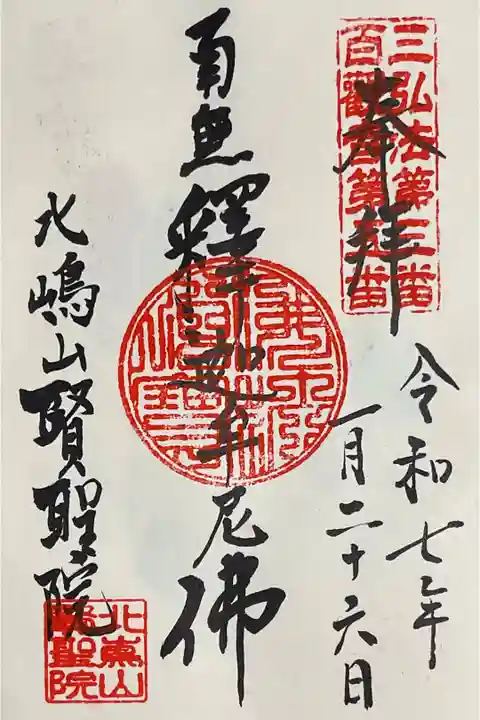 奉拝
令和七年
一月二十六日
南無釋迦牟尼佛
北嶋山賢聖院
三弘法第三番
百觀音第
番
北嶌山
賢聖院